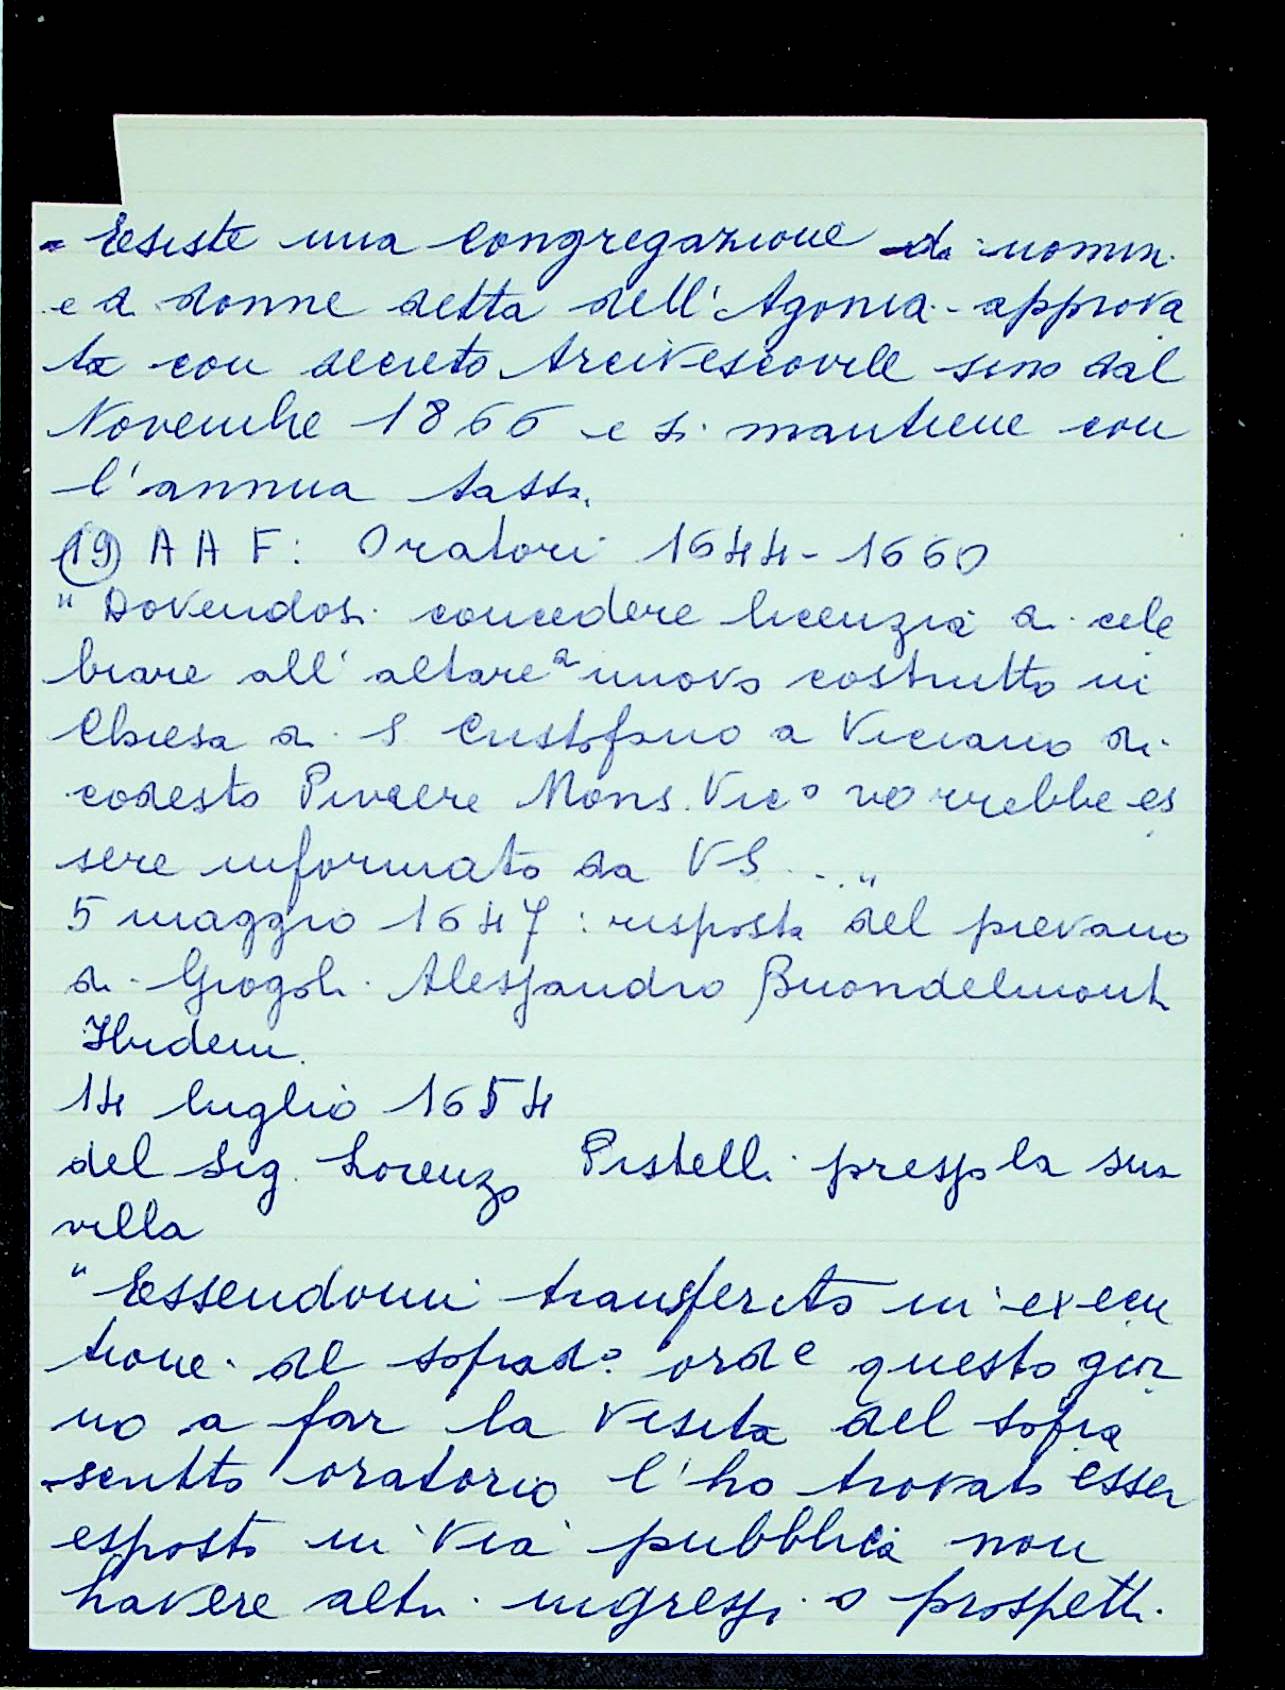 - Esiste una Congregazione di uomini
e di donne detta dell'Agonia - approva
ta con decreto Arcivescovile sino dal
Novembre 1866 e si mantiene con
l'annua tassa.
(19) A A F: Oratori 1644-1660
"Dovendosi concedere licenzia di cele
brare all'altare a nuovo costrutto in
Chiesa di S Cristofano a Viciano di
codesto Piviere Mons. Vicº vorrebbe es
sere informato da VS ... "
5 maggio 1647: risposta del pievano
di Giogoli Alessandro Buondelmonti
Ibidem.
14 luglio 1654
del Sig. Lorenzo Pistelli presso la sua
villa
"Essendomi transferito in execu
tione del soprad.º ord.e questo gior
no a far la visita del sopra
scritto oratorio l'ho trovato esser
esposto in via pubblica non
havere altri ingressi o prospetti